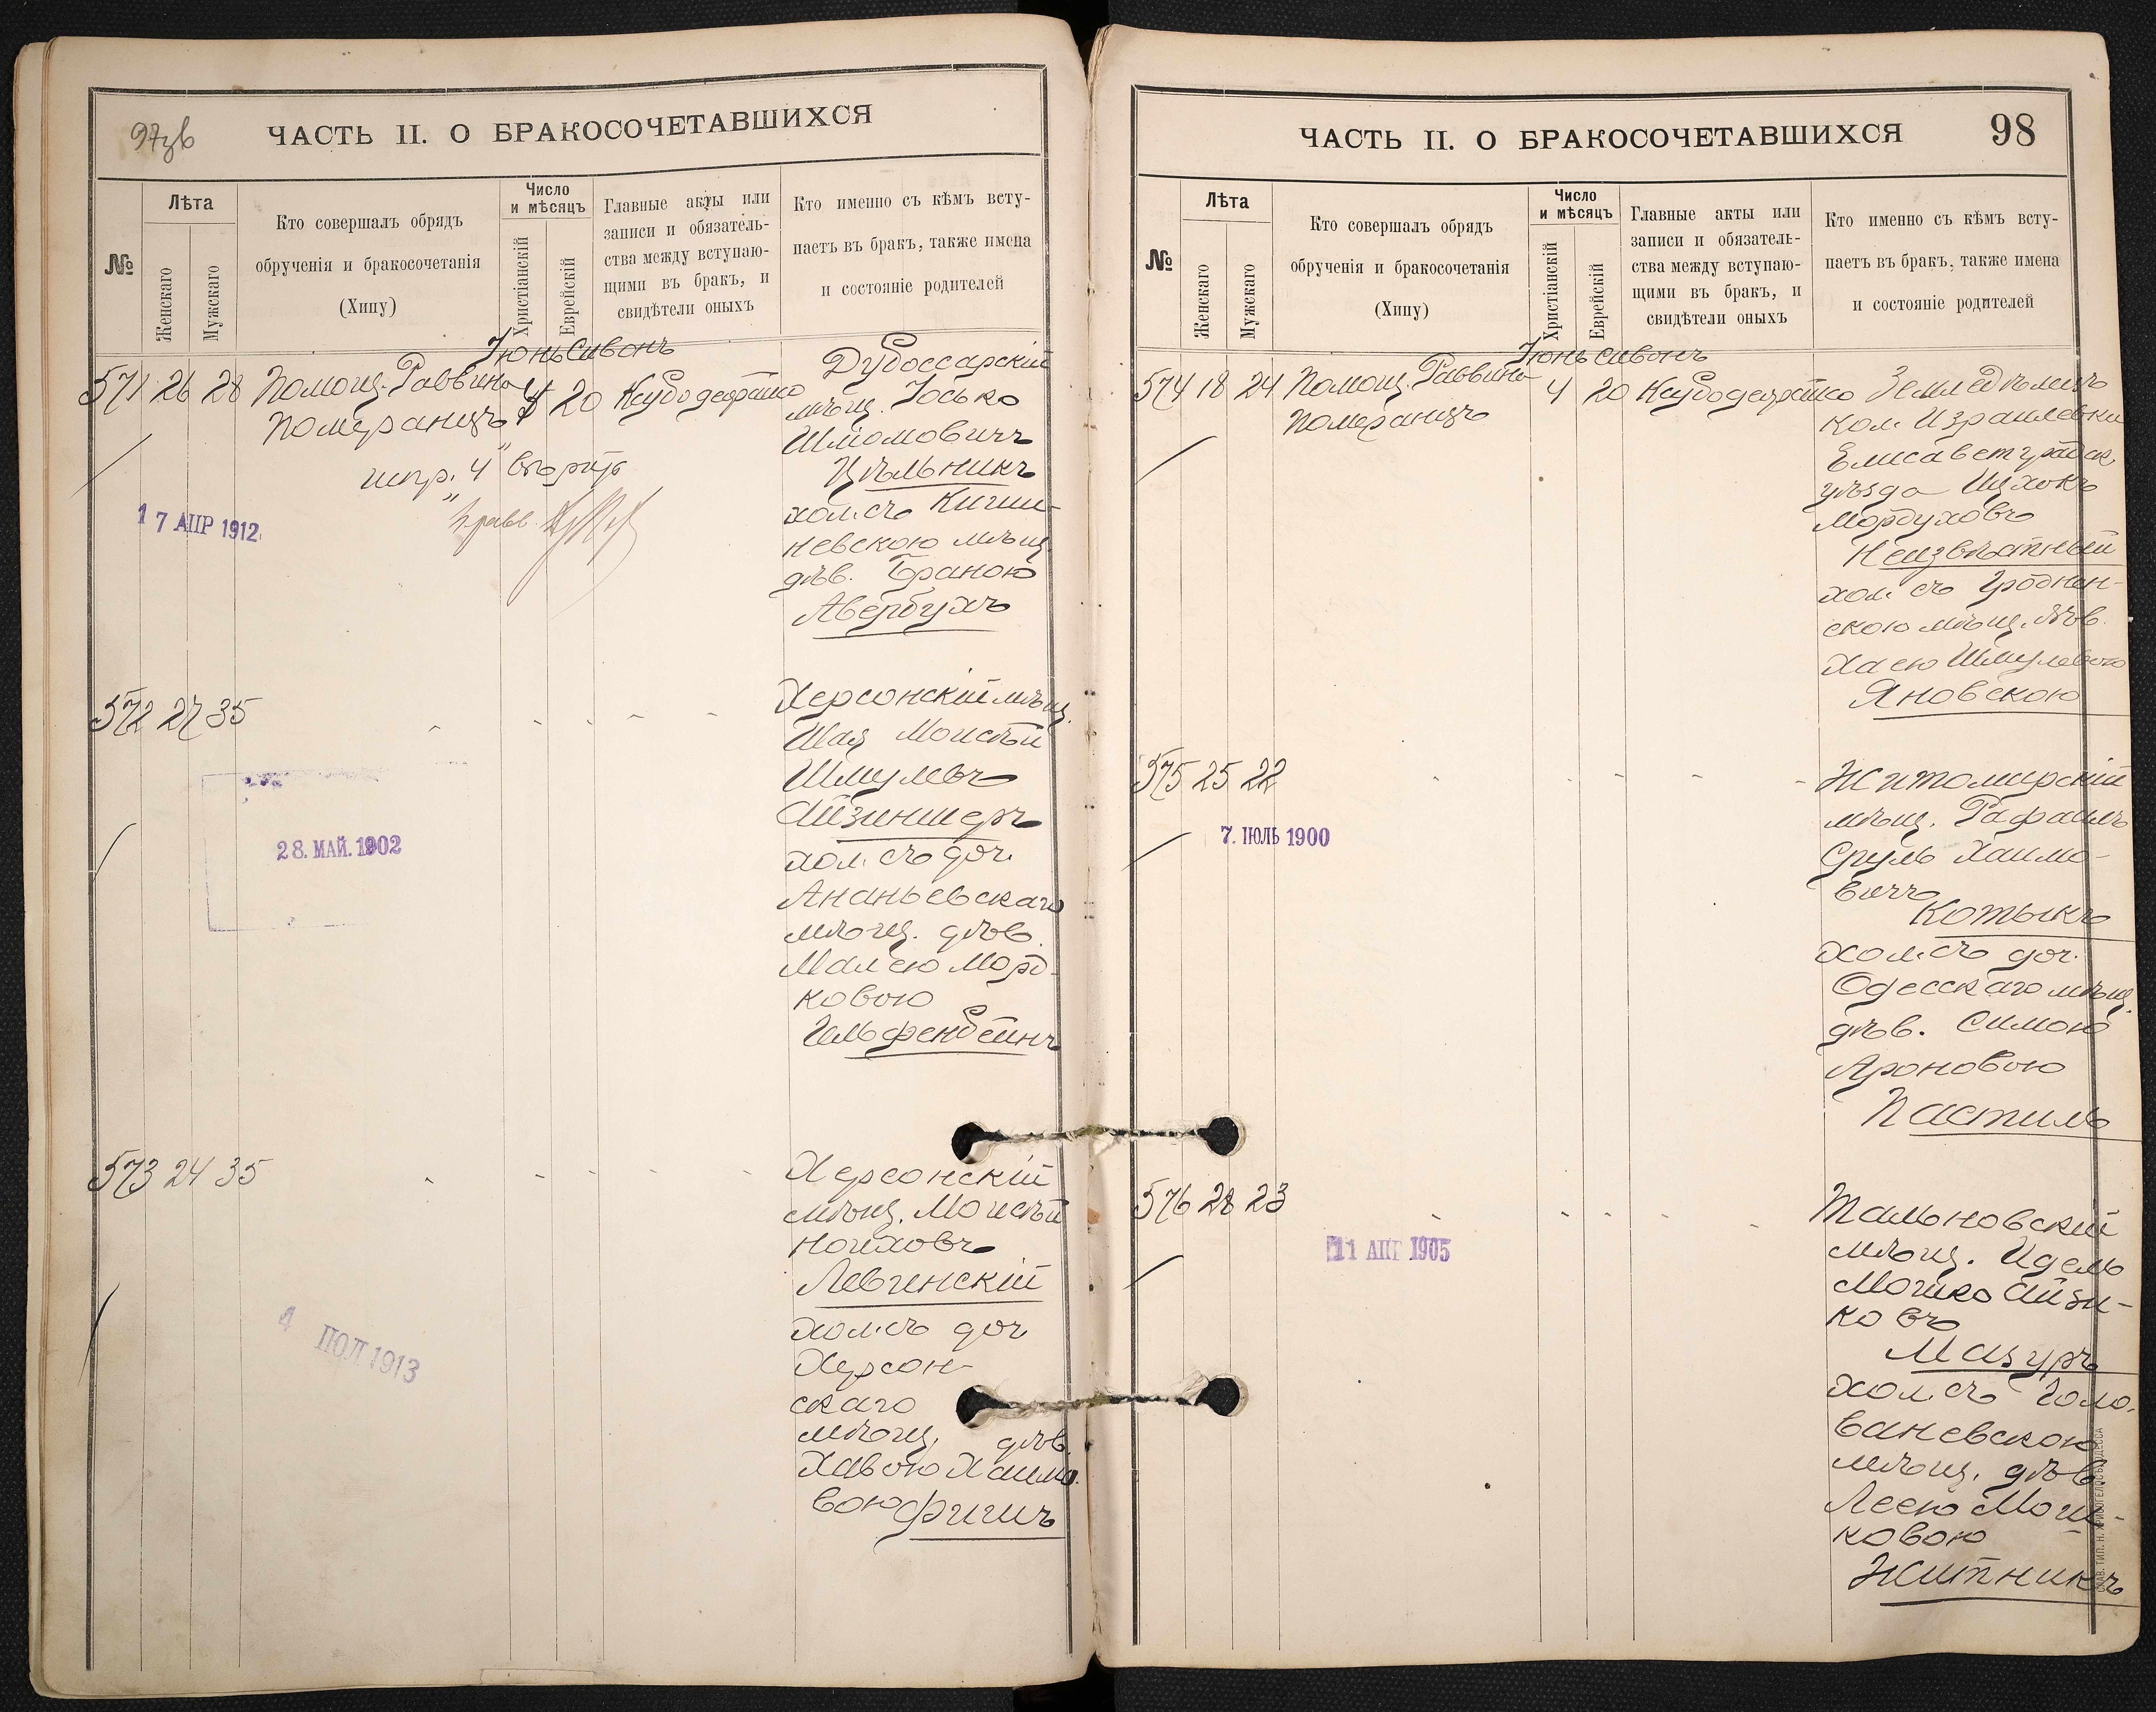 97зв
ЧАСТЬ II. О БРАКОСОЧЕТАВШИХСЯ
№
Лѣта
Женскаго
Мужскаго
Кто совершалъ обрядъ
обрученія и бракосочетанія
(Хипу)
Число
и мѣсяцъ
Христіанскій
Еврейскій
Главные акты или
записи и обязатель-
ства между вступаю-
щими въ бракъ, и
свидѣтели оныхъ
Кто именно съ кѣмъ всту-
паетъ въ бракъ, также имена
и состояніе родителей
Іюнь Сивонъ
571 26 28 Помощ. Раввина 4 20
Померанцъ
испр. "4" вѣрить
17 АПР 1912
Дубоссарскій
мѣщ. Іосько
Шліомовичъ
Цѣльникъ
хол. съ Киши-
невскою мѣщ.
дѣв. Браною
Авербухъ
572 27 35
28. МАЙ. 1902
Херсонскій мѣщ.
Шая Моисѣй
Шмулевъ
Айзиншеръ
хол. съ доч.
Ананьевскаго
мѣщ. дѣв.
Малею Морд-
ковою
Гельфенбейнъ
573 24 35
4 ПОЛ 1913
Херсонскій
мѣщ. Моисѣй
Ноиховъ
Левчинскій
хол. съ доч.
Херсон-
скаго
мѣщ. дѣв.
Хавою Хаимо-
вою Фишъ
ЧАСТЬ II. О БРАКОСОЧЕТАВШИХСЯ
98
№
Лѣта
Женскаго
Мужскаго
Кто совершалъ обрядъ
обрученія и бракосочетанія
(Хипу)
Число
и мѣсяцъ
Христіанскій
Еврейскій
Главные акты или
записи и обязатель-
ства между вступаю-
щими въ бракъ, и
свидѣтели оныхъ
Кто именно съ кѣмъ всту-
паетъ въ бракъ, также имена
и состояніе родителей
Іюнь Сивонъ
574 18 24 Помощ. Раввина 4 20
Померанцъ
Земледѣлецъ
кол. Израилевки
Елисаветградск.
уѣзда
Мордуховъ
Неизвѣстный
хол. съ Гроднен-
скою мѣщ. дѣв.
Хаею Шмулевою
Яновскою
575 25 22
7. ІЮЛЬ 1900
Житомирскій
мѣщ. Рафаилъ
Сруль Хаимо-
вичъ
Котыкъ
хол. съ доч.
Одесскаго мѣщ.
дѣв. Симою
Ароновою
Пастиль
576 28 23
11 АПР 1905
Тальновскій
мѣщ. Идель
Мошко Айзи-
ковъ
Мазуръ
хол. съ Голо-
ваневскою
мѣщ. дѣв.
Леею Мош-
ковою
Житникъ